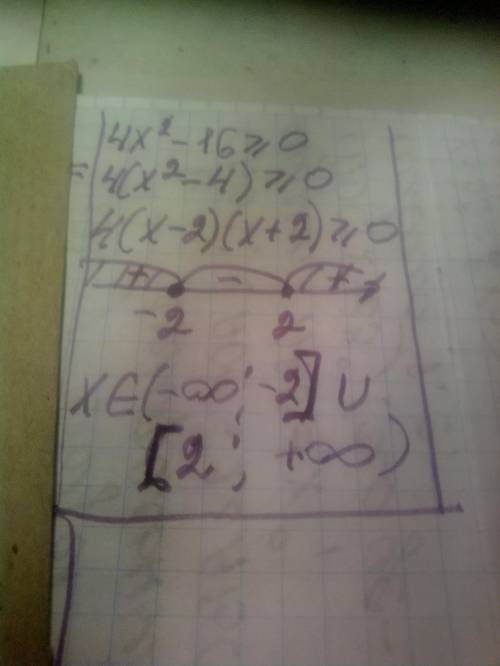 4x²-16⩾0
=4(x²-4)⩾0
4(x-2)(x+2)⩾0
+ - +
-2 2
x∈(-∞; -2] ∪
[2; +∞)